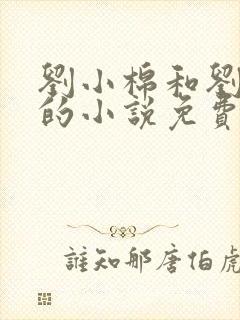 劉小棉和劉
的小說免費
誰知那唐伯虎